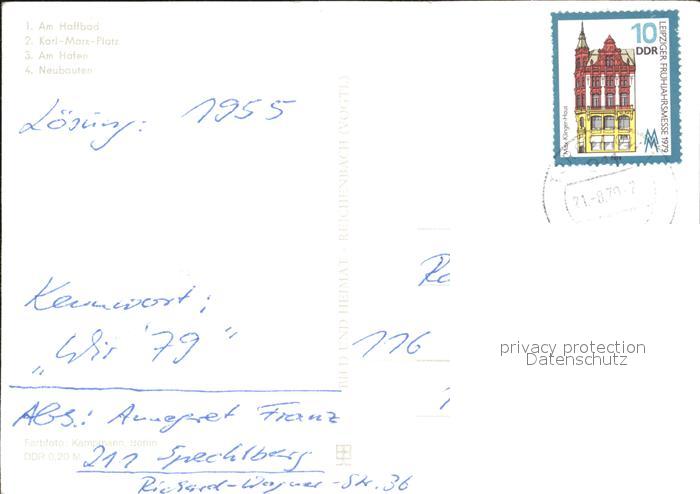 1. Am Haffbad
2. Karl-Marx-Platz
3. Am Hafen
4. Neubauten
Lösung: 1955
Kennwort:
„Wir '79"
Abs.: Annegret Franz
211 Spechtberg
Richard-Wagner-Str. 36
Farbfoto: Kampmann,
DDR 0,20 M
BILD UND HEIMAT · REICHENBACH (VOGTL)
10
DDR
LEIPZIGER FRÜHJAHRSMESSE 1979
Max-Klinger-Haus
21.-8.79-
116
privacy protection
Datenschutz